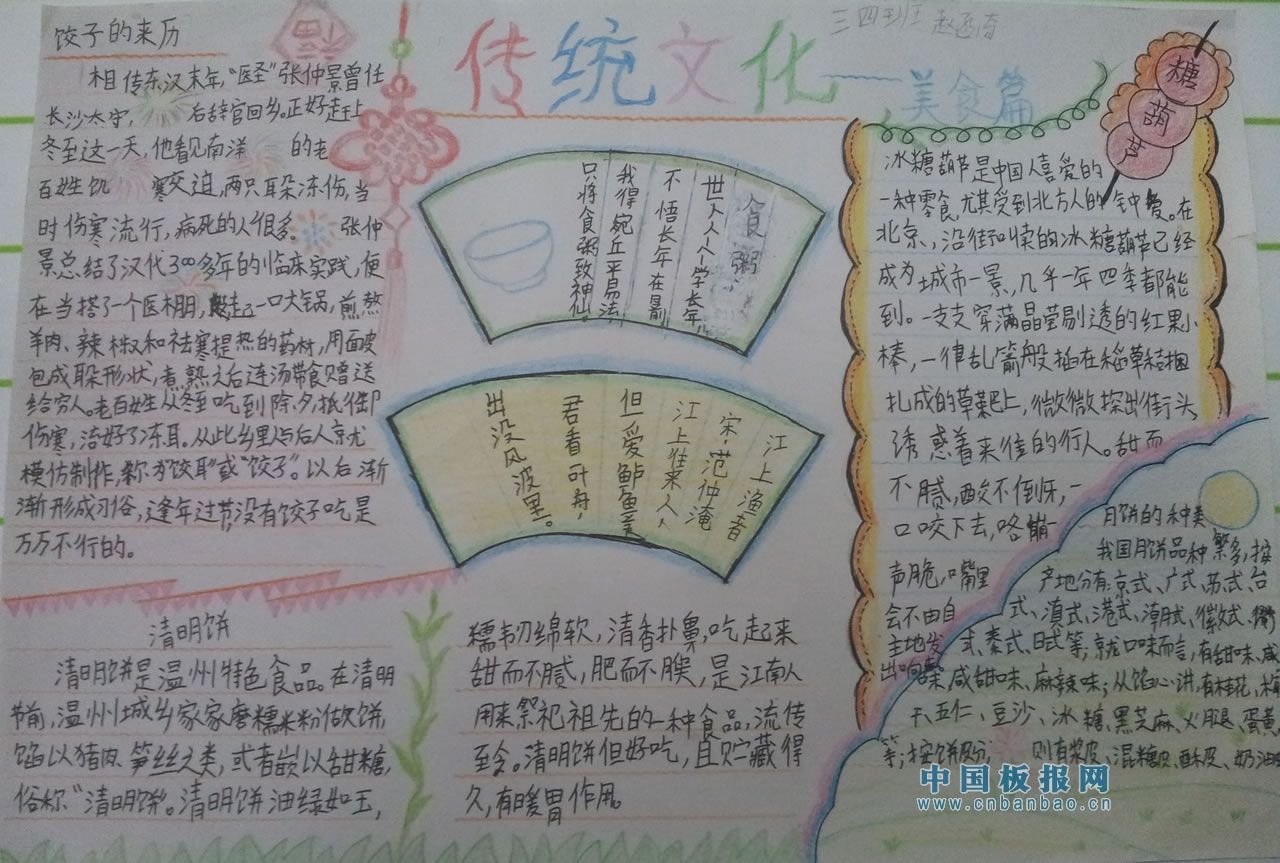 传统文化——美食篇
三四班 赵
饺子的来历
相传东汉末年，“医圣”张仲景曾任
长沙太守，后辞官回乡。正好赶上
冬至这一天，他看见南洋的老
百姓饥寒交迫，两只耳朵冻伤，当
时伤寒流行，病死的人很多。张仲
景总结了汉代300多年的临床实践，便
在当搭了一个医棚，起一口大锅，煎熬
羊肉、辣椒和祛寒提热的药材，用面皮
包成耳朵形状，煮熟之后连汤带食赠送
给穷人。老百姓从冬至吃到除夕，抵御
伤寒，治好了冻耳。从此乡里人与后人京尤
模仿制作，称为“饺耳”或“饺子”。以后渐
渐形成习俗，逢年过节，没有饺子吃是
万万不行的。
食粥
世人个个学长年
不悟长年在眼前
我得宛丘平易法
只将食粥致神仙。
江上渔音
宋·范仲淹
江上往来人，
但爱鲈鱼美
君看一叶舟，
出没风波里。
糖葫芦
冰糖葫芦是中国人喜爱的
一种零食，尤其受到北方人的钟爱。在
北京，沿街叫卖的冰糖葫芦已经
成为城市一景，几乎一年四季都能
到。一支支穿满晶莹剔透的红果小
棒，一律乱箭般插在稻草结捆
扎成的草靶上，微微探出街头
诱惑着来往的行人。甜而
不腻，酸不倒牙，一
口咬下去，咯嘣一
声脆，嘴里
会不由自
主地发
出响来
清明饼
清明饼是温州特色食品。在清明
节前，温州城乡家家磨糯米粉做饼，
馅以猪肉、笋丝之类，或者嵌以甜糖，
俗称“清明饼”。清明饼油绿如玉，
糯韧绵软，清香扑鼻，吃起来
甜而不腻，肥而不腴，是江南人
用来祭祀祖先的一种食品，流传
至今。清明饼但好吃，且贮藏得
久，有暖胃作用。
月饼的种类
我国月饼品种繁多，按
产地分有：京式、广式、苏式、台
式、滇式、港式、潮式、徽式、衢
式、秦式、日式等；就口味而言，有甜味、咸
味、咸甜味、麻辣味；从馅心讲，有桂花、梅
干、五仁、豆沙、冰糖、黑芝麻、火腿、蛋黄
等；按饼皮分，则有浆皮、混糖皮、酥皮、奶油
中国板报网
www.cnbanbao.cn